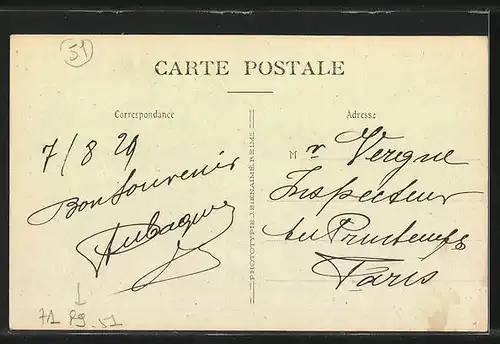 51
CARTE POSTALE
Correspondance
Adresse
7/8 29
Bon Souvenir
Mr Vergne
Inspecteur
au Printemps
Paris
PHOTOTYPIE J. BIENAIMÉ REIMS
51